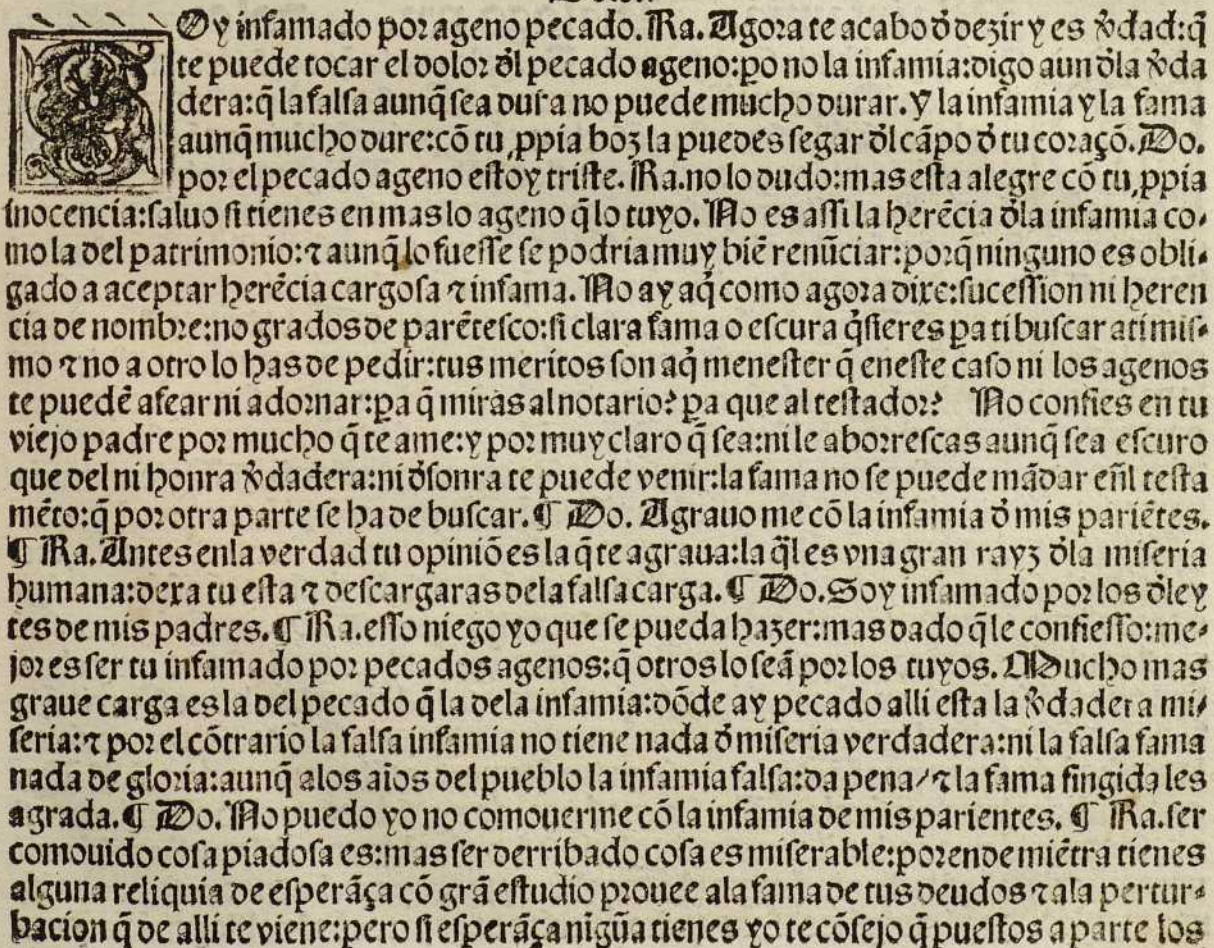 SOy infamado por ageno pecado. Ra. Agora te acabo đ dezir y es v̄dad: q̄
te puede tocar el dolor đl pecado ageno: ꝑo no la infamia: digo aun đla v̄da
dera: q̄ la falsa aunq̄ sea dura no puede mucho durar. Y la infamia y la fama
aunq̄ mucho dure: cō tu ꝓpia boz la puedes segar đl cāpo đ tu coraçō. Do.
por el pecado ageno estoy triste. Ra. no lo dudo: mas esta alegre cō tu ꝓpia
inocencia: saluo si tienes en mas lo ageno q̄ lo tuyo. No es assi la herēcia đla infamia co-
mo la del patrimonio: ⁊ aunq̄ lo fuesse se podria muy biē renūciar: porq̄ ninguno es obli-
gado a aceptar herēcia cargosa ⁊ infama. No ay aq̄ como agora dixe: sucession ni heren
cia de nombre: no grados de parētesco: si clara fama o escura q̄sieres ꝑa ti buscar a ti mis-
mo ⁊ no a otro lo has de pedir: tus meritos son aq̄ menester q̄ eneste caso ni los agenos
te puedē afear ni adornar: ꝑa q̄ miras al notario? ꝑa que al testador? No confies en tu
viejo padre por mucho q̄ te ame: y por muy claro q̄ sea: ni le aborrescas aunq̄ sea escuro
que del ni honra v̄dadera: ni đsonra te puede venir: la fama no se puede mādar eñl testa
mēto: q̄ por otra parte se ha de buscar. ¶ Do. Agrauo me cō la infamia đ mis pariētes.
¶ Ra. Antes enla verdad tu opiniō es la q̄ te agraua: la q̄l es vna gran rayz đla miseria
humana: dexa tu esta ⁊ descargaras dela falsa carga. ¶ Do. Soy infamado por los đley
tes de mis padres. ¶ Ra. esso niego yo que se pueda hazer: mas dado q̄ le confiesso: me-
jor es ser tu infamado por pecados agenos: q̄ otros lo seā por los tuyos. Mucho mas
graue carga es la del pecado q̄ la dela infamia: dōde ay pecado alli esta la v̄dadera mi-
seria: ⁊ por el cōtrario la falsa infamia no tiene nada đ miseria verdadera: ni la falsa fama
nada de gloria: aunq̄ alos aīos del pueblo la infamia falsa: da pena/ ⁊ la fama fingida les
agrada. ¶ Do. No puedo yo no comouerme cō la infamia de mis parientes. ¶ Ra. ser
comouido cosa piadosa es: mas ser derribado cosa es miserable: porende miētra tienes
alguna reliquia de esperāça cō grā estudio prouee ala fama de tus deudos ⁊ ala pertur-
bacion q̄ de alli te viene: pero si esperāça nigūa tienes yo te cōsejo q̄ puestos a parte los